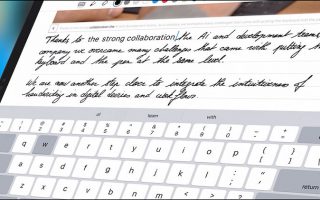 Thanks to the strong collaboration, the AI and development teams
company we overcame many challenges that came with putting the
keyboard and the pen at the same level.
We are now another step close to integrate the intuitiveness of
handwriting in digital devices and workflows.
al team with
q w e r t y u i o p
a s d f g h j k l
z x c v b n m
return